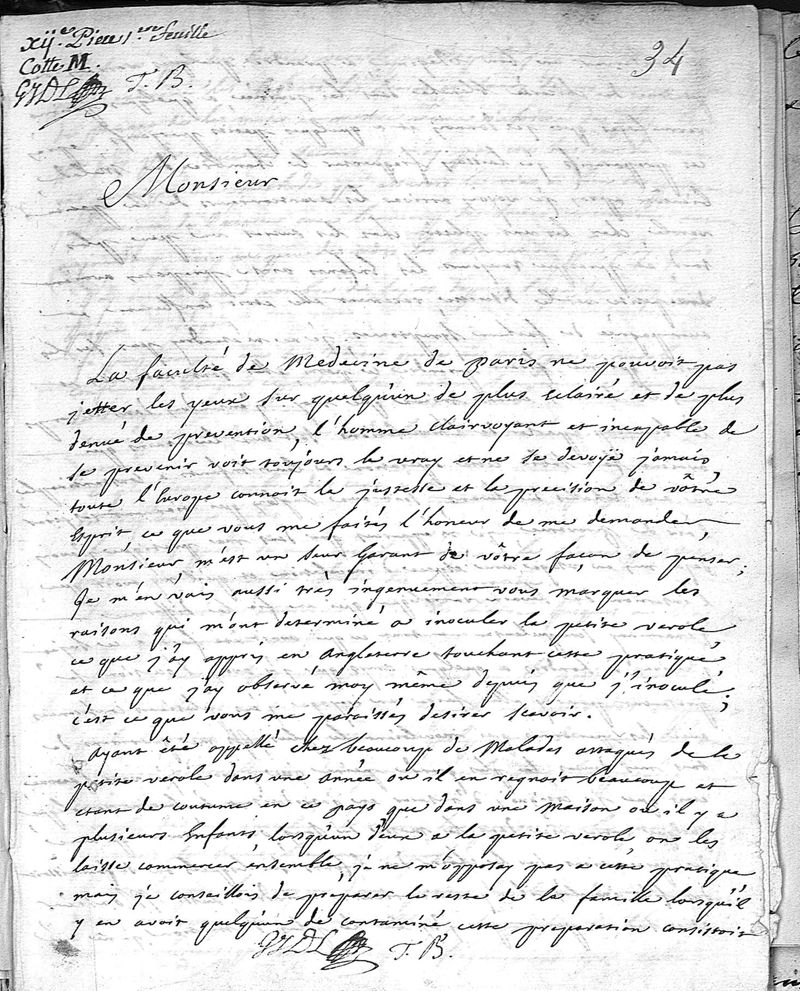 xij.e Piece 1.ere feuille
Cotte M.
34
T. B.
Monsieur
La faculté de Medecine de paris ne pouvoit pas
jetter les yeux sur quelqu'un de plus eclairé et de plus
denué de prevention, l'homme clairvoyant et incapable de
se prevenir voit toujours le vray et ne se devoye jamais,
toute l'Europe connoit la justesse et la precision de vôtre
Esprit, ce que vous me faités l'honneur de me demander
Monsieur m'est un seur Garant de vôtre façon de penser;
Je m'en vais aussi très ingenuement vous marquer les
raisons qui m'ont determiné a inoculer la petite verole,
ce que j'ay appris en Angleterre touchant cette pratique
et ce que j'ay observé moy même depuis que j'inocule;
c'est ce que vous me paraissés desirer scavoir.
Ayant été appellé chez beaucoup de Malades attaqués de la
petite verole dans une année ou il en regnoit beaucoup et
etant de coutume en ce pays que dans une Maison ou il y a
plusieurs Enfants, lorsqu'un d'eux a la petite verole, on les
laisse commercer ensemble, je ne m'opposay pas a cette pratique
mais je conseillois de preparer le reste de la famille lorsqu'il
y en avoit quelqu'un de contaminé, cette preparation consistoit
T. B.